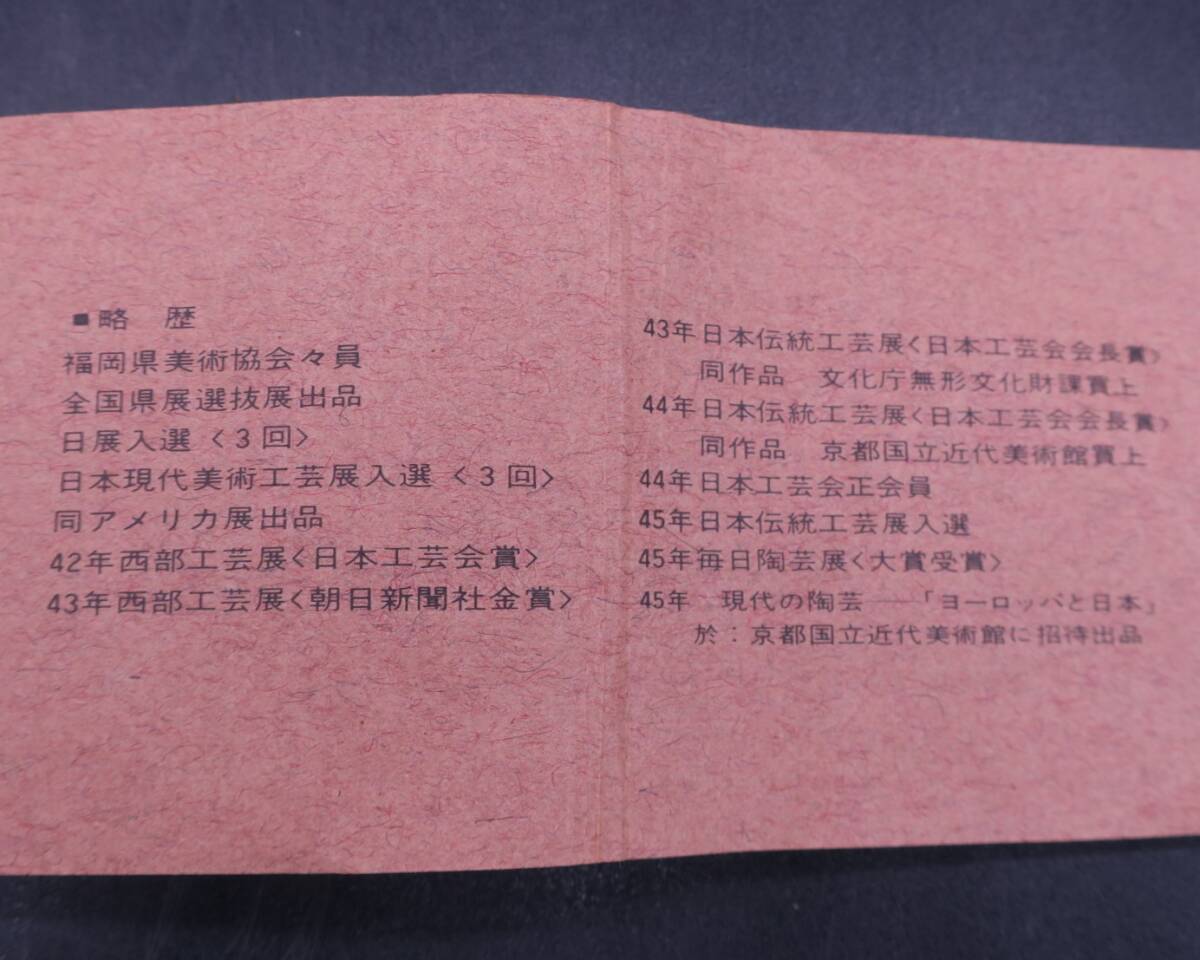 ■略　歴
福岡県美術協会々員
全国県展選抜展出品
日展入選〈3回〉
日本現代美術工芸展入選〈3回〉
同アメリカ展出品
42年西部工芸展〈日本工芸会賞〉
43年西部工芸展〈朝日新聞社金賞〉
43年日本伝統工芸展〈日本工芸会会長賞〉
同作品　文化庁無形文化財課買上
44年日本伝統工芸展〈日本工芸会会長賞〉
同作品　京都国立近代美術館買上
44年日本工芸会正会員
45年日本伝統工芸展入選
45年毎日陶芸展〈大賞受賞〉
45年　現代の陶芸──「ヨーロッパと日本」
於：京都国立近代美術館に招待出品